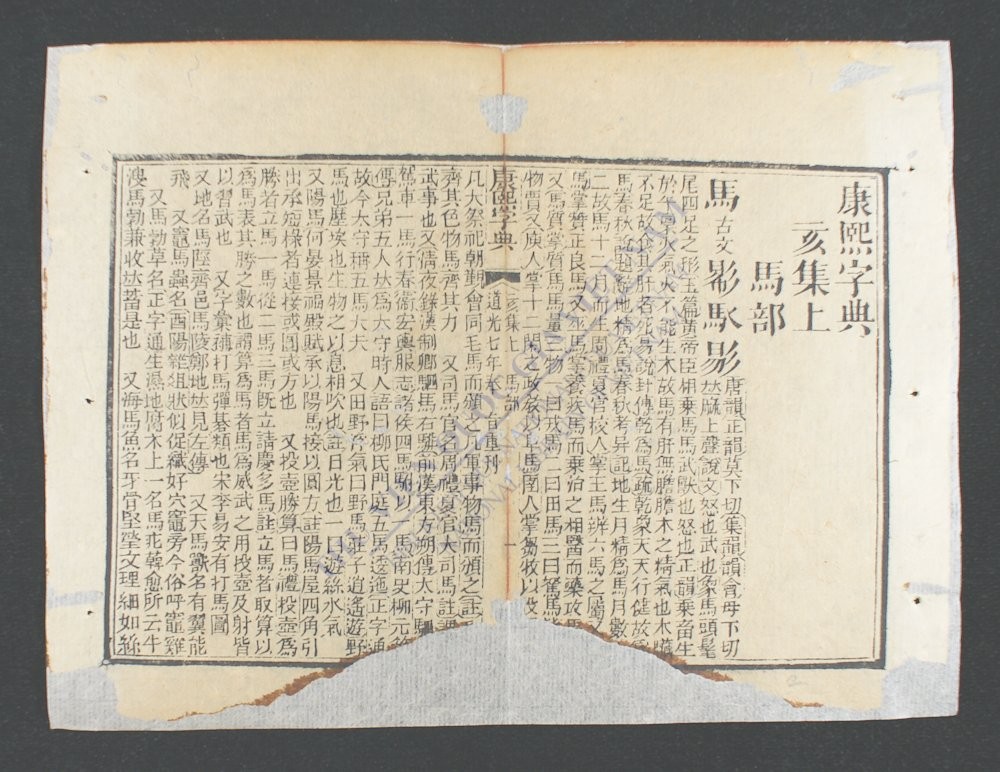 康熙字典
亥集上
馬部
馬古文影𩡧𢒠唐韻正韻莫下切集韻韻會母下切
𠀤麻上聲說文怒也武也象馬頭髦
尾四足之形玉篇黃帝臣相乘馬馬武獸也怒也正韻乘畜生
於火火氣火不能生木故馬有肝無膽膽木之精氣也木臟
不足故食其肝者死易說卦傳乾為馬疏乾象天天行健故為
馬春秋說題辭地精為馬春秋考異記地生月精為馬月數
二故馬十二月而生周禮夏官校人掌王馬辨六馬之屬
馬掌贊正良馬又巫馬掌養疾馬而乘治之相醫而藥攻馬
又馬質掌質馬馬量三物一曰戎馬二曰田馬三曰駑馬
物賈又廋人掌十二閑之政教以阜馬圉人掌芻牧以
康熙字典
亥集上 馬部
道光七年奉旨重刊
一
凡大祭祀朝覲會同毛馬而頒之凡軍事物馬而頒之註
齊其色物馬齊其力 又司馬官名周禮夏官大司馬註
武事也又倩夜錄漢制卿駟馬右騑前漢東方朔傳太守駟
駕車一馬行春衞宏輿服志諸侯四馬駙以一馬南史柳元
傳兄弟五人𠀤為太守時人語曰柳氏門庭五馬逶迤正字通
故今太守稱五馬大夫 又田野浮氣曰野馬莊子逍遙遊野
馬也塵埃也生物之以息相吹也註日光也一曰遊絲水氣
又陽馬何晏景福殿賦承以陽馬接以圓方註陽馬屋四角引
出承短椽者連接或圓或方也 又投壺勝算曰馬禮投壺為
勝者立馬一馬從二馬三馬既立請慶多馬註立馬者取算以
為馬表其勝之數也謂算為馬者馬為威武之用投壺及射皆
以習武也 又字彙補打馬彈棊類也宋李易安有打馬圖
又地名馬陘齊邑馬陵鄭地𠀤見左傳 又天馬獸名有翼能
飛 又竈馬蟲名酉陽雜俎狀似促織好穴竈旁今俗呼竈雞
又馬勃草名正字通生濕地腐木上一名馬疕韓愈所云牛
溲馬勃兼收𠀤蓄是也 又海馬魚名牙骨堅瑩文理細如絲